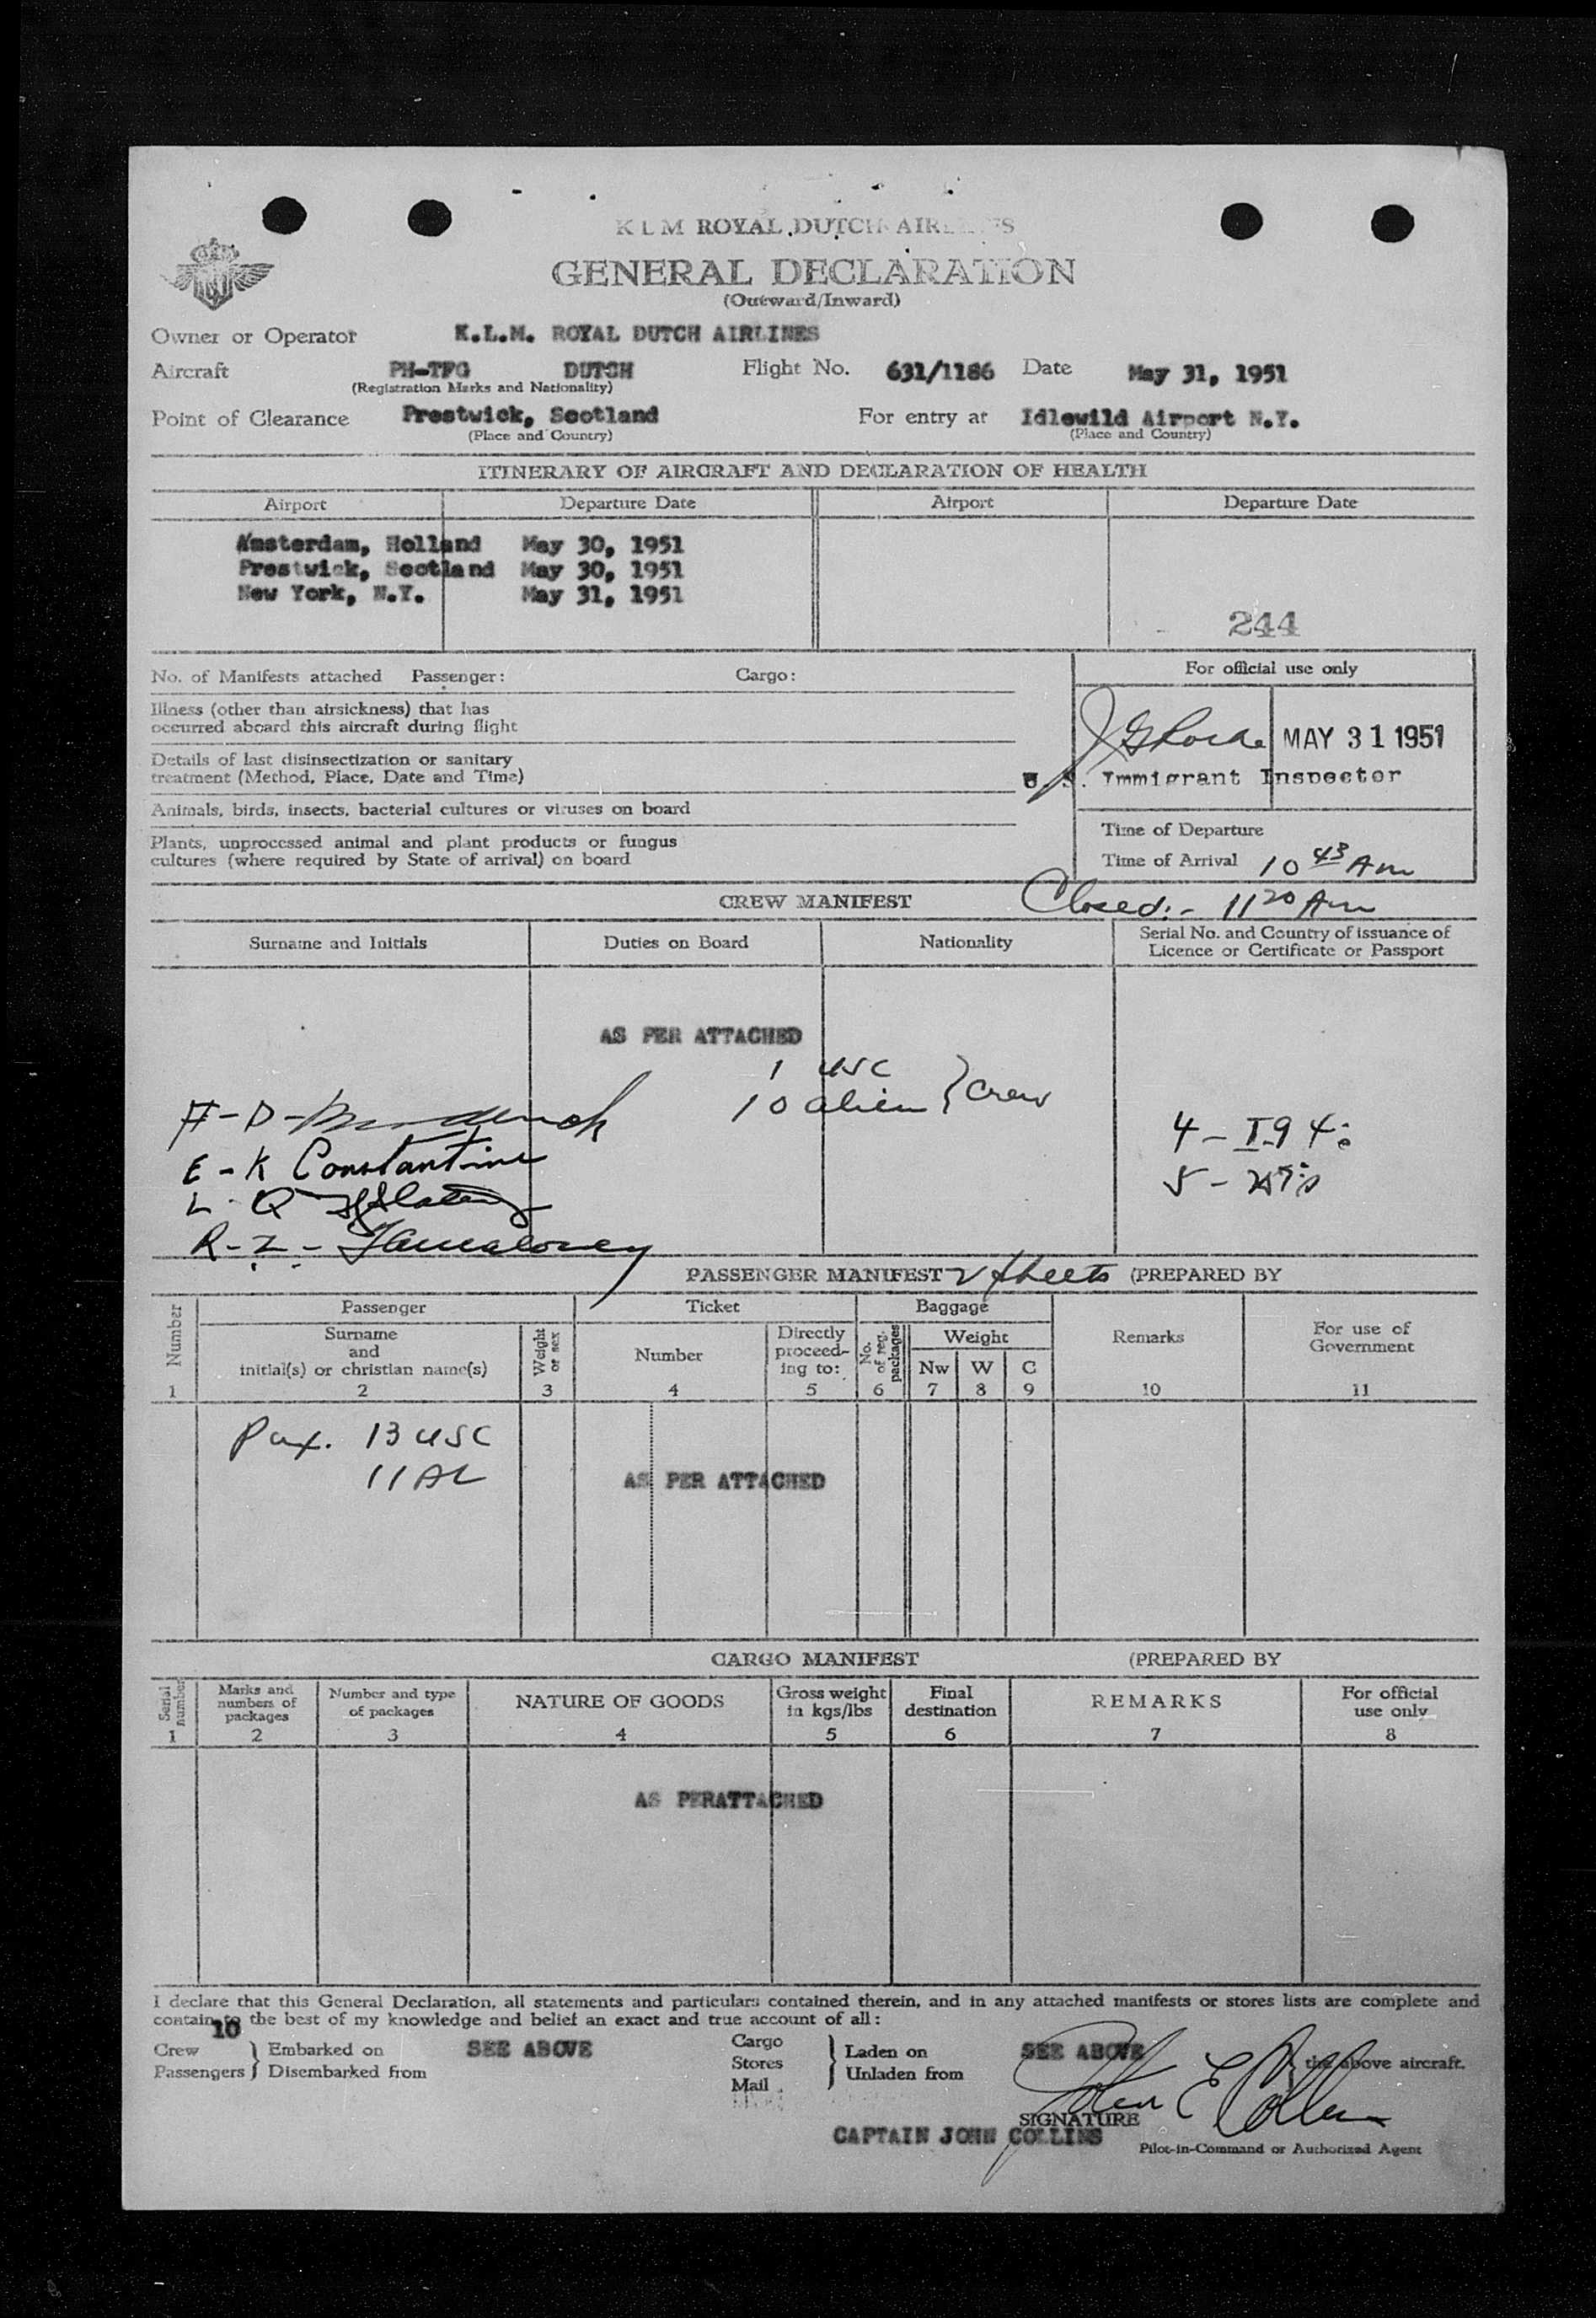 KLM ROYAL DUTCH AIRLINES
GENERAL DECLARATION
(Outward/Inward)
Owner or Operator K.L.M. ROYAL DUTCH AIRLINES
Aircraft PH-TFG DUTCH Flight No. 631/1186 Date May 31, 1951
(Registration Marks and Nationality)
Point of Clearance Prestwick, Scotland For entry at Idlewild Airport N.Y.
(Place and Country) (Place and Country)
ITINERARY OF AIRCRAFT AND DECLARATION OF HEALTH
Airport Departure Date Airport Departure Date
Amsterdam, Holland May 30, 1951
Prestwick, Scotland May 30, 1951
New York, N.Y. May 31, 1951
244
No. of Manifests attached Passenger: Cargo:
For official use only
Illness (other than airsickness) that has
occurred aboard this aircraft during flight
MAY 31 1951
Details of last disinsectization or sanitary
treatment (Method, Place, Date and Time)
U. S. Immigrant Inspector
Animals, birds, insects, bacterial cultures or viruses on board
Plants, unprocessed animal and plant products or fungus
cultures (where required by State of arrival) on board
Time of Departure
Time of Arrival 10 43 Am
CREW MANIFEST Closed:- 11 20 Am
Surname and Initials Duties on Board Nationality Serial No. and Country of issuance of
Licence or Certificate or Passport
AS PER ATTACHED
1 USC
10 alien } Crew
H-D-
E-K Constantine
L-Q
R-Z-
4 - I94:
5 -
PASSENGER MANIFEST 2 sheets (PREPARED BY
Number Passenger Ticket Baggage Remarks For use of
Government
Surname
and
initial(s) or christian name(s)
Weight
or sex
Number
Directly
proceed-
ing to:
No.
of reg.
packages
Weight
Nw W C
1 2 3 4 5 6 7 8 9 10 11
Pax. 13 USC
11 AL
AS PER ATTACHED
CARGO MANIFEST (PREPARED BY
Serial
number
Marks and
numbers of
packages
Number and type
of packages
NATURE OF GOODS
Gross weight
in kgs/lbs
Final
destination
REMARKS
For official
use only
1 2 3 4 5 6 7 8
AS PERATTACHED
I declare that this General Declaration, all statements and particulars contained therein, and in any attached manifests or stores lists are complete and
contain to the best of my knowledge and belief an exact and true account of all:
10
Crew } Embarked on SEE ABOVE
Passengers } Disembarked from
Cargo
Stores
Mail
} Laden on SEE ABOVE
Unladen from
} the above aircraft.
John E Collins
SIGNATURE
CAPTAIN JOHN COLLINS
Pilot-in-Command or Authorized Agent